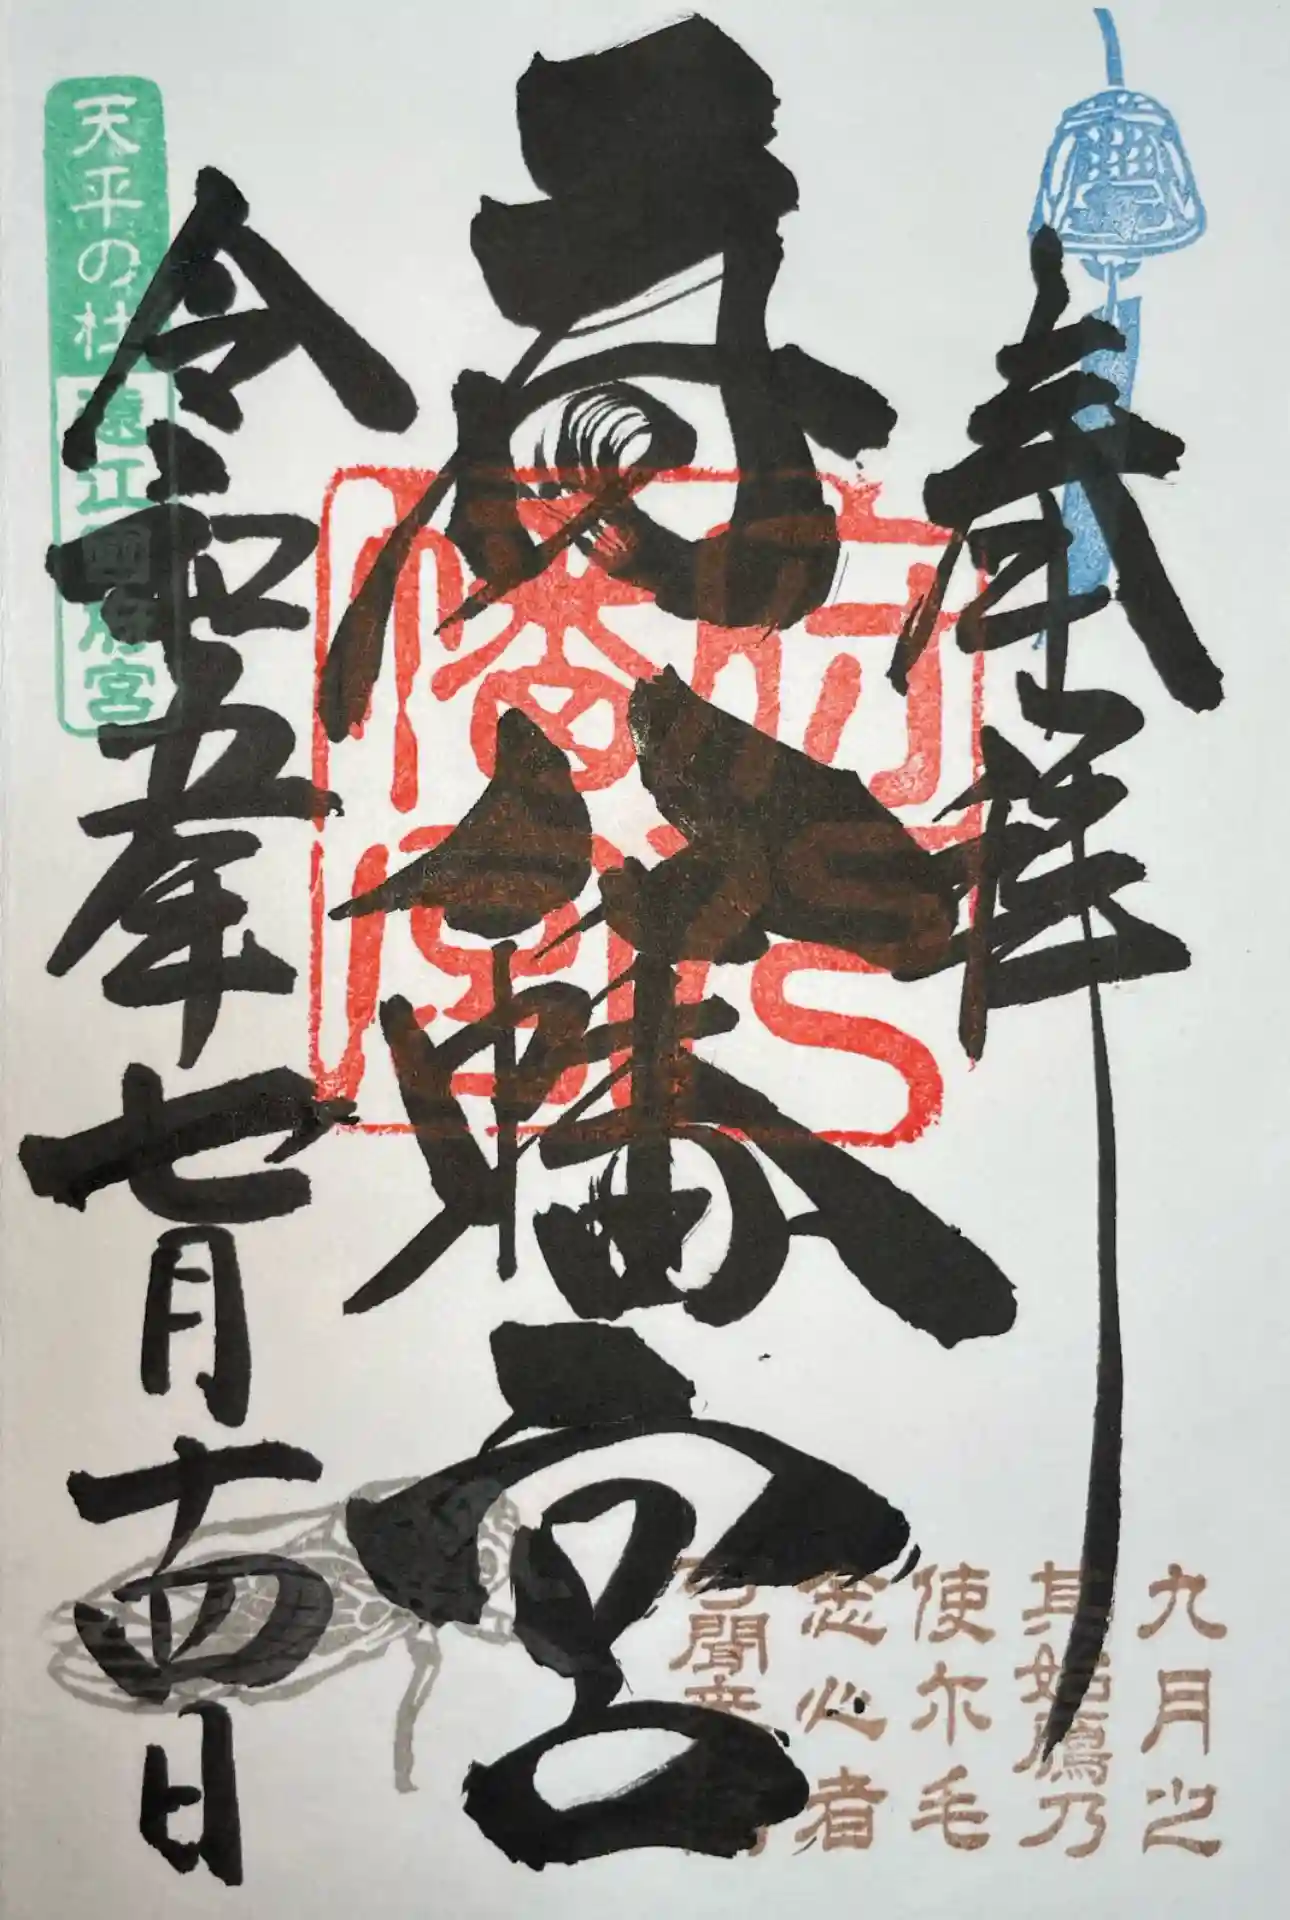 奉拝
九月之
其始鴈乃
使尓毛
念心者
聞
府八幡宮
府八
幡宮
天平の杜
遠江國府宮
令和五年七月十四日